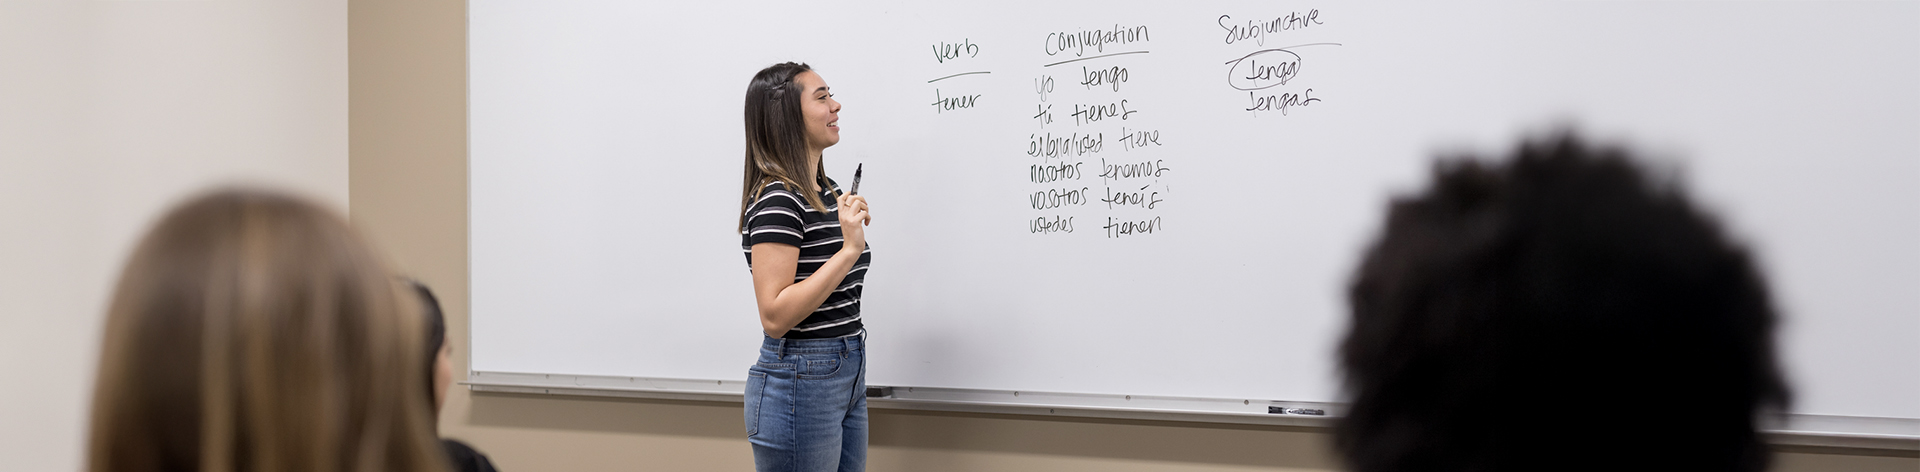 verb
tener
Conjugation
yo tengo
tú tienes
él/ella/usted tiene
nosotros tenemos
vosotros teneís
ustedes tienen
Subjunctive
tenga
tengas